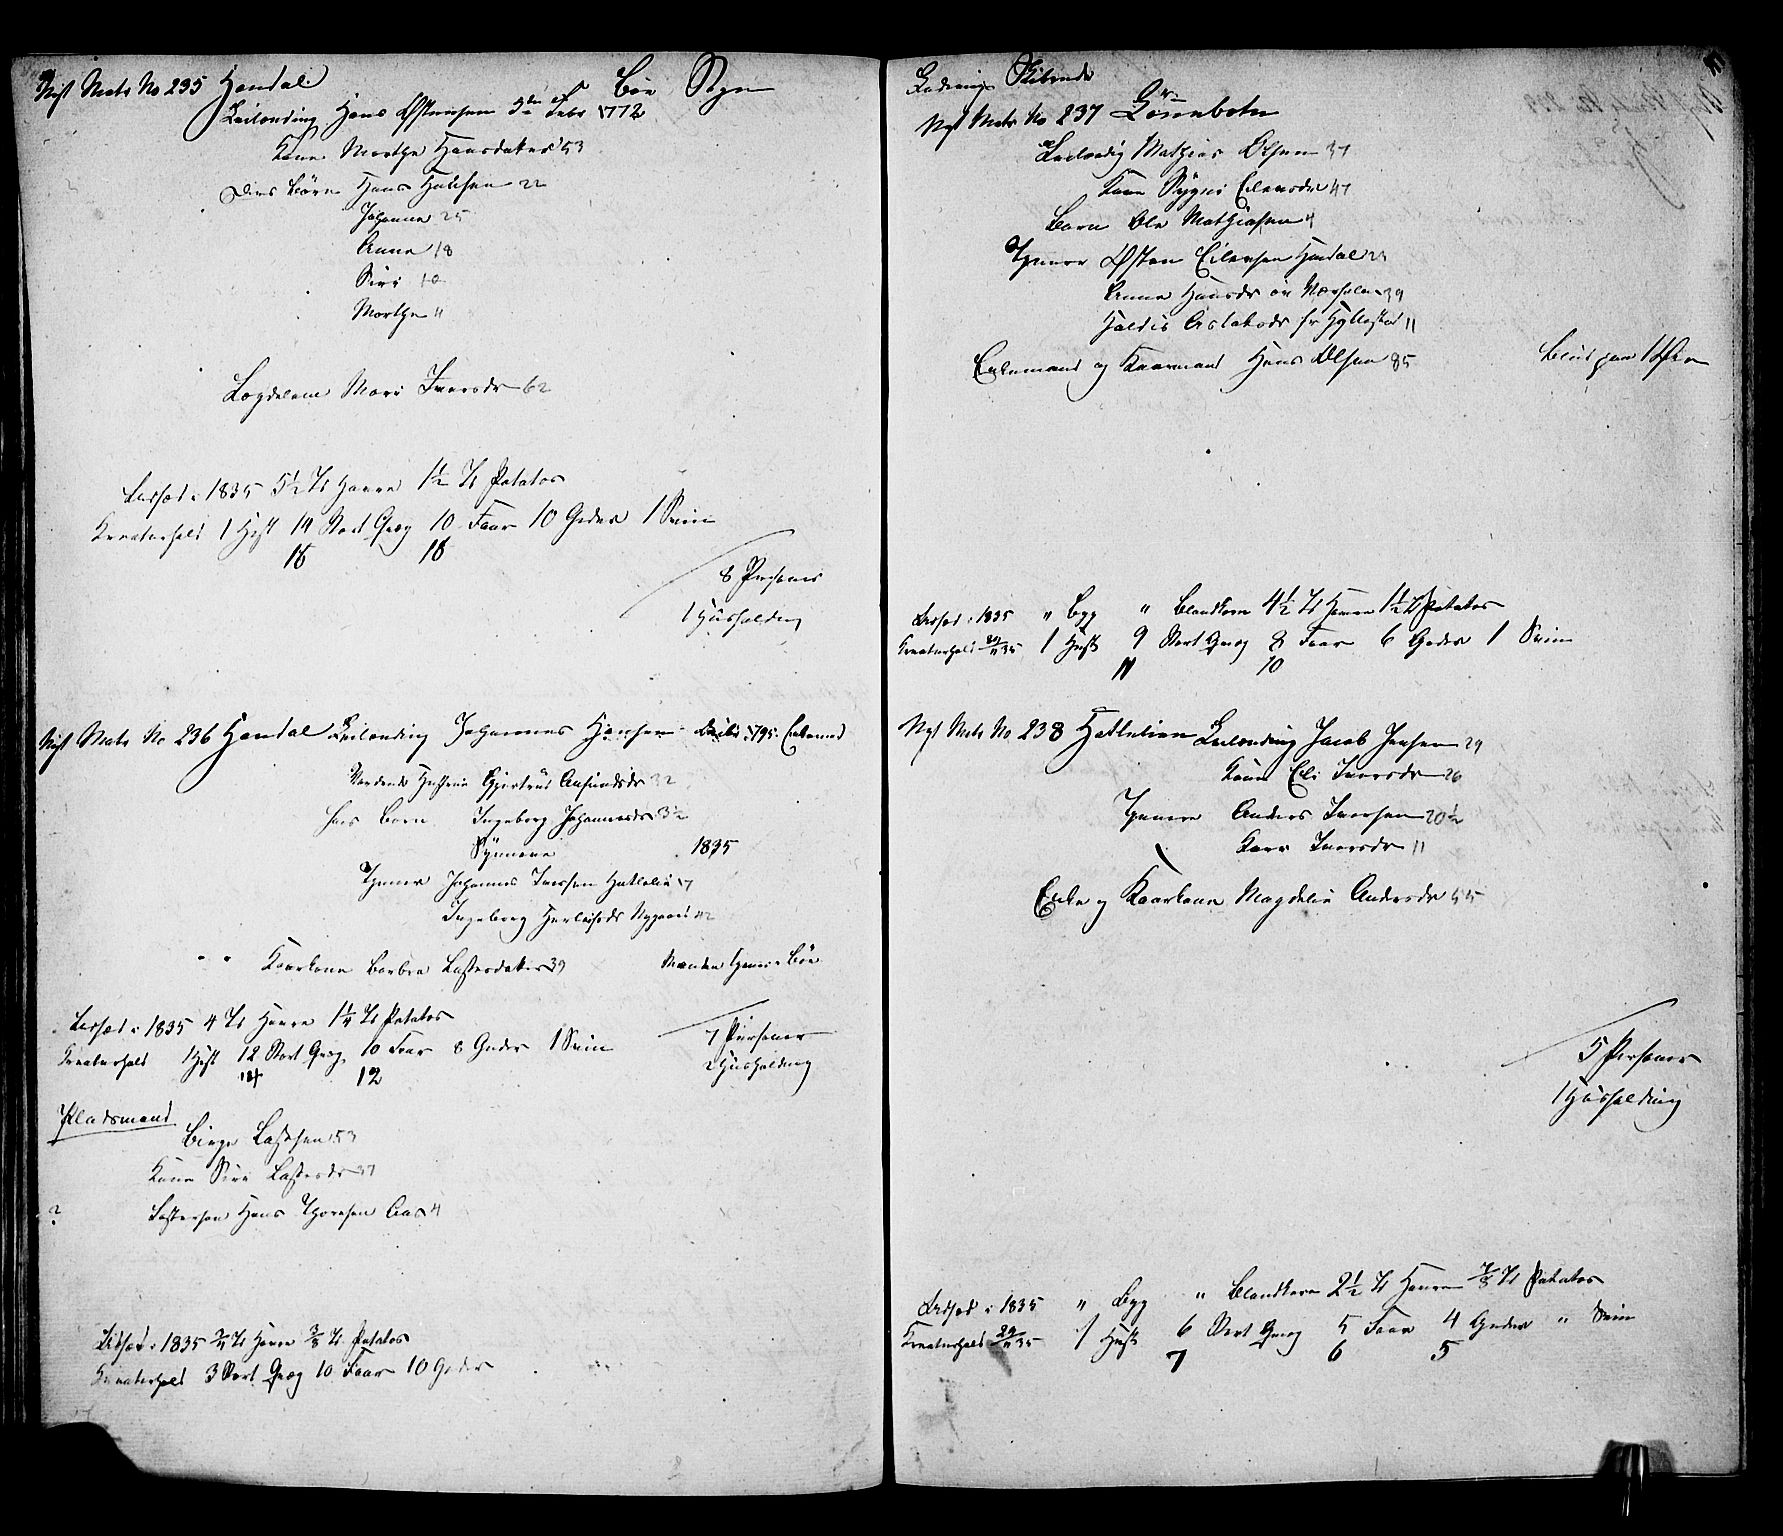 Nyt Matr No 235 Handal Böe Sogn
Leilænding Hans Østensen 5te Febr 1772
Kone Marthe Hansdatter 53
Dires Börn Hans Hansen 22
Johanne 25
Anne 18
Siri 10
Marthe 11
Lægdelem Mari Iversdr 62
Udsæd i 1835 5½ Td Havre 1½ Td Potatos
Kreaturhold 1 Hest 14 Stort Qvæg 10 Faar 10 Geder 1 Sviin
16 18
8 Personer
1 Huusholding
Nyt Matr No 236 Handal Leilænding Johannes Hansen 1795 Enkemand
Vordende Hustrue Gjertrud Amundsdr 32
hans Barn Ingeborg Johannesdr 3½
Synneve 1835
Tjener Johannes Iversen Hatlelie 17
Ingeborg Herleifsdr Nygaard 42
" " Kaarkone Barbra Lassesdatter 39 Manden tjener i Böe
Udsæd i 1835 4 Td Havre 1¼ Td Potatos
Kreaturhold 1 Hest 12 Stort Qvæg 10 Faar 8 Geder 1 Sviin
14 12
7 Personer
2 Huusholding
Pladsmand
Börge Lassesen 53
Kone Siri Lassesdr 37
? Fostersøn Hans Thoresen Aas 4
Udsæd i 1835 ¾ Td Havre ⅜ Td Potatos
Kreaturhold 3 Stort Qvæg 10 Faar 10 Geder
Ladvigs Skibrede
Nyt Matr No 237 Gösenbotn
Leilændig Mathias Olsen 37
Kone Sygni Eilersdr 47
Barn Ole Mathiasen 4
Tjenere Østen Eilersen Handal 23
Anne Hansdr 39
Haldis Aslaksdr fr Hyllestad 11
Enkemand og Kaarmand Hans Olsen 85
Udsæd i 1835 " Byg " Blandkorn 4½ Td Havre 1½ Td Potatos
Kreaturhold 29/11 35 1 Hest 9 Stort Qvæg 8 Faar 6 Geder 1 Sviin
11 10
Nyt Matr No 238 Hatlelien Leilænding Jacob Jensen 29
Kone Eli Iversdr 26
Tjenere Anders Iversen 20½
Kari Iversdr 11
Enke og Kaarkone Magdeli Andersdr 55
5 Personer
1 Huusholding
Udsæd i 1835 " Byg " Blandkorn 2½ Td Havre ⅞ Td Potatos
Kreaturhold 29/11 35 1 Hest 6 Stort Qvæg 5 Faar 4 Geder " Sviin
7 6 5